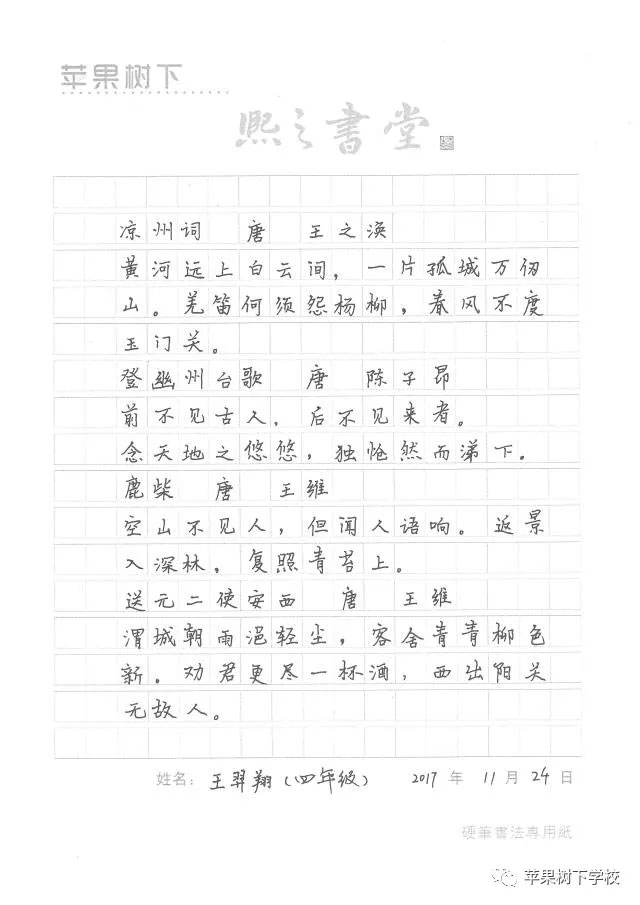 苹果树下
熙之書堂
凉州词 唐 王之涣
黄河远上白云间，一片孤城万仞
山。羌笛何须怨杨柳，春风不度
玉门关。
登幽州台歌 唐 陈子昂
前不见古人，后不见来者。
念天地之悠悠，独怆然而涕下。
鹿柴 唐 王维
空山不见人，但闻人语响。返景
入深林，复照青苔上。
送元二使安西 唐 王维
渭城朝雨浥轻尘，客舍青青柳色
新。劝君更尽一杯酒，西出阳关
无故人。
姓名：王羿翔（四年级） 2017 年 11 月 24 日
硬筆書法專用紙
苹果树下学校